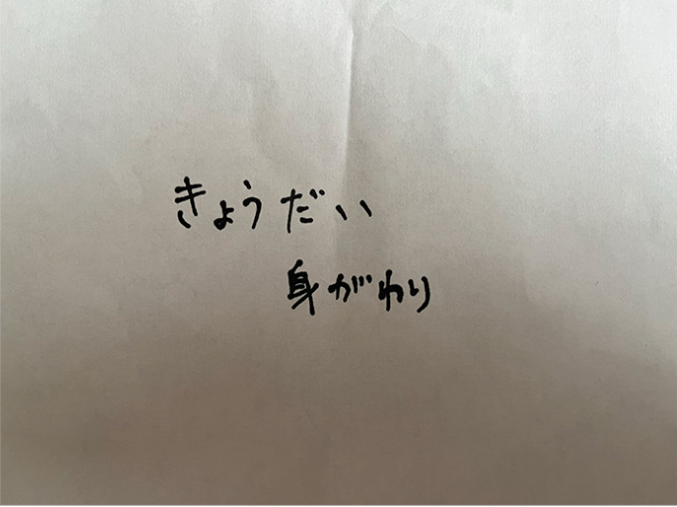 きょうだい
身がわり